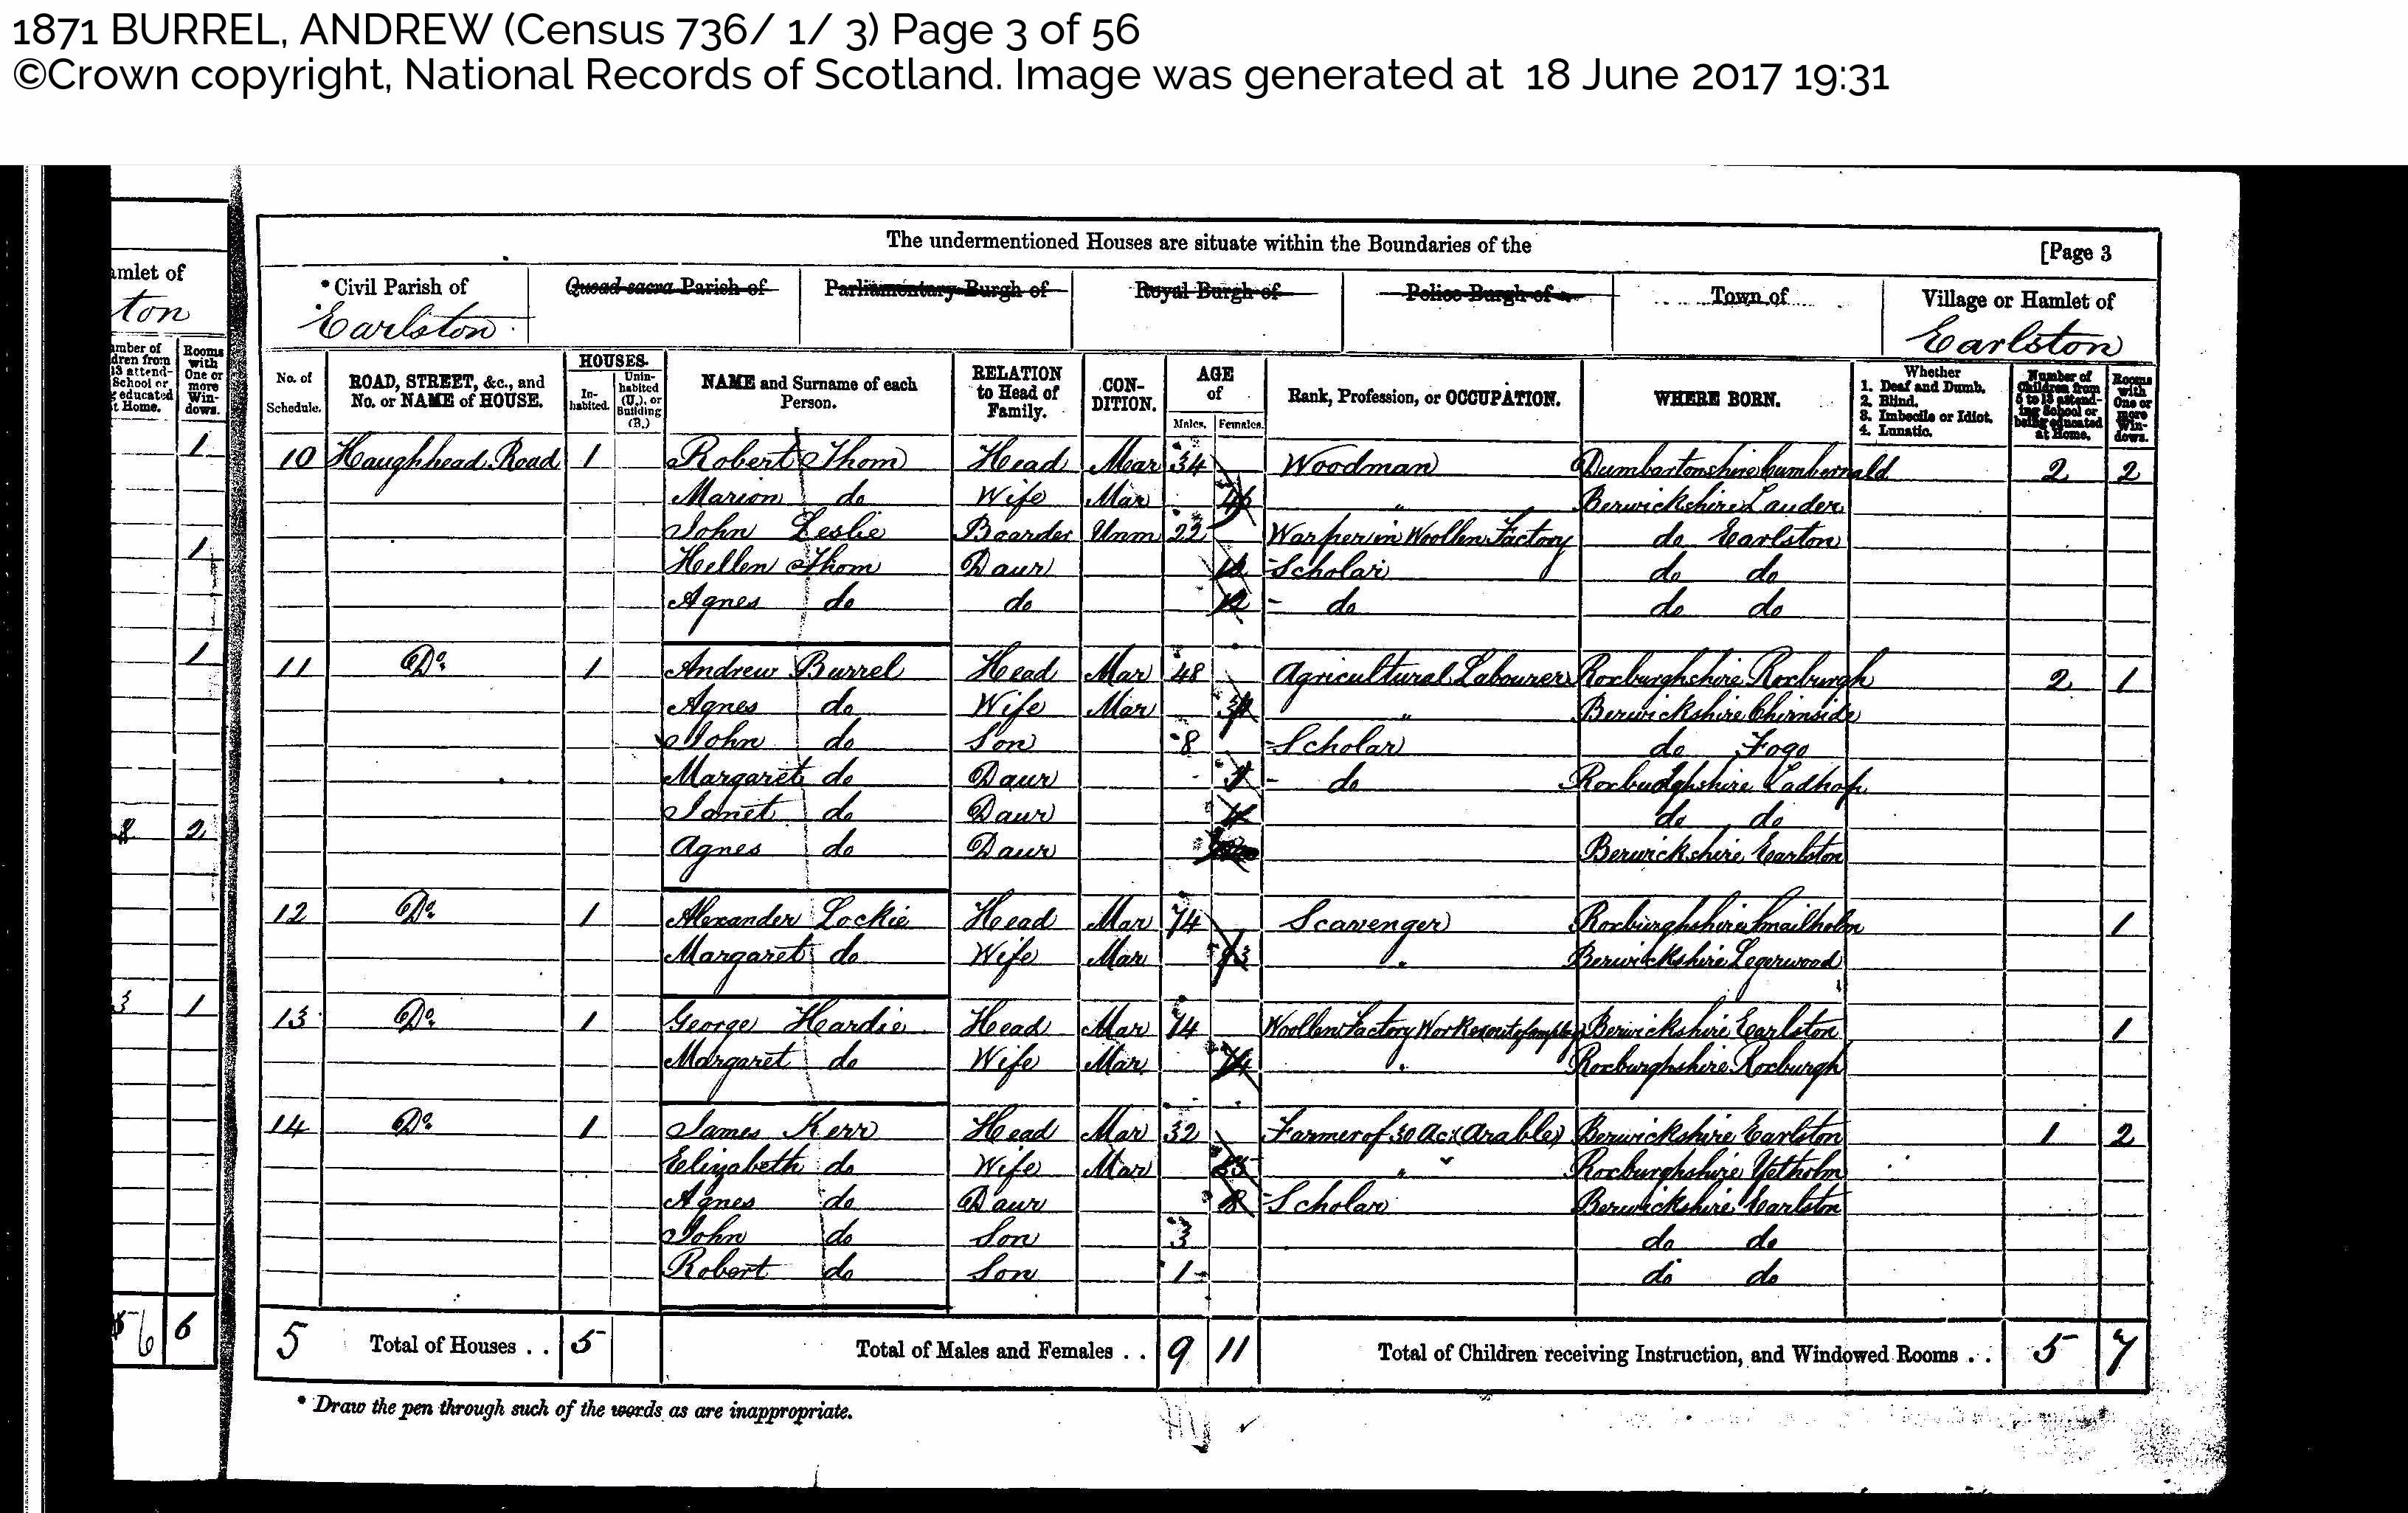 1871 BURREL, ANDREW (Census 736/ 1/ 3) Page 3 of 56
©Crown copyright, National Records of Scotland. Image was generated at 18 June 2017 19:31
The undermentioned Houses are situate within the Boundaries of the
[Page 3
amlet of
ton
*Civil Parish of Earlston
Quoad sacra Parish of
Parliamentary Burgh of
Royal Burgh of
Police Burgh of
Town of
Village or Hamlet of Earlston
No. of Schedule.
ROAD, STREET, &c., and No. or NAME of HOUSE.
HOUSES.
In-habited.
Unin-habited (U.), or Building (B.)
NAME and Surname of each Person.
RELATION to Head of Family.
CON-DITION.
AGE of
Males.
Females.
Rank, Profession, or OCCUPATION.
WHERE BORN.
Whether
1. Deaf and Dumb.
2. Blind.
3. Imbecile or Idiot.
4. Lunatic.
Number of Children from 5 to 13 attend-ing School or being educated at Home.
Rooms with One or more Win-dows.
10 Haughhead Road 1 Robert Thom Head Mar 34 Woodman Dumbartonshire Cumbernald 2 2
Marion do Wife Mar 46 " Berwickshire Lauder
John Leslie Boarder Unm 22 Warper in Woollen Factory do Earlston
Hellen Thom Daur Scholar do do
Agnes do do 12 do do do
11 Do 1 Andrew Burrel Head Mar 48 Agricultural Labourer Roxburghshire Roxburgh 2 1
Agnes do Wife Mar " Berwickshire Chirnside
John do Son 8 Scholar do Fogo
Margaret do Daur do Roxburghshire Ladhope
Janet do Daur 4 do do
Agnes do Daur Berwickshire Earlston
12 Do 1 Alexander Lockie Head Mar 74 Scavenger Roxburghshire Smailholm 1
Margaret do Wife Mar 73 " Berwickshire Legerwood
13 Do 1 George Hardie Head Mar 74 Woollen Factory Worker out of employ Berwickshire Earlston 1
Margaret do Wife Mar 74 " Roxburghshire Roxburgh
14 Do 1 James Kerr Head Mar 32 Farmer of 30 Ac (Arable) Berwickshire Earlston 1 2
Elizabeth do Wife Mar " " Roxburghshire Yetholm
Agnes do Daur 8 Scholar Berwickshire Earlston
John do Son 3 do do
Robert do Son 1 do do
5 Total of Houses . . 5 Total of Males and Females . . 9 11 Total of Children receiving Instruction, and Windowed Rooms . . 5 7
* Draw the pen through such of the words as are inappropriate.